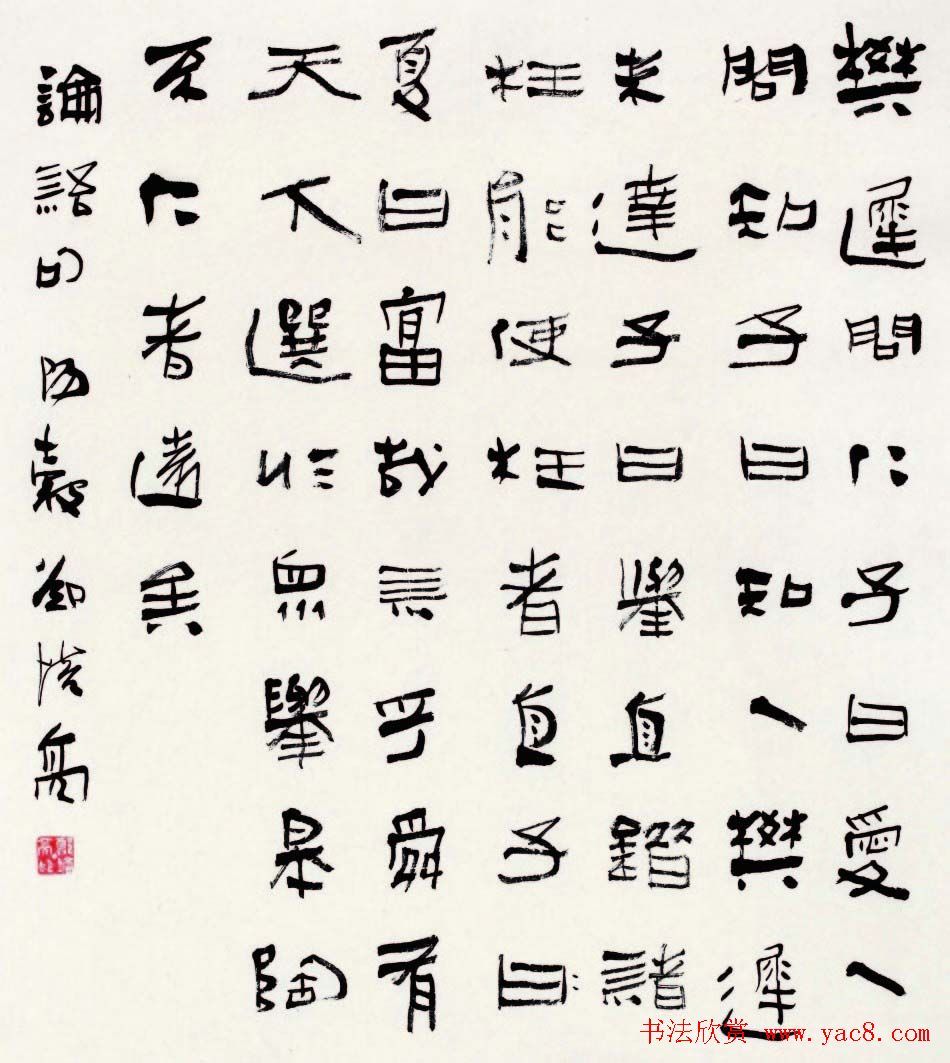 樊遲問仁子曰愛人
問知子曰知人樊遲
未達子曰舉直錯諸
枉能使枉者直子曰
夏曰富哉言乎舜有
天下選於眾舉皋陶
不仁者遠矣
論語句
书法欣赏 www.yac8.com